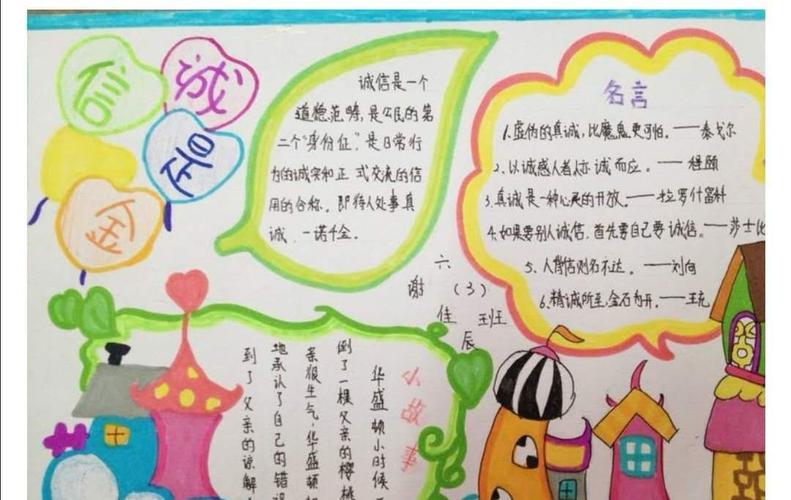 诚
信
是
金
诚信是一个
道德范畴,是公民的第
二个"身份证",是日常行
为的诚实和正式交流的信
用的合称。即待人处事真
诚、一诺千金。
名言
1.虚伪的真诚,比魔鬼更可怕。——泰戈尔
2.以诚感人者人亦诚而应。——程颐
3.真诚是一种心灵的开放。——拉罗什富科
4.如果要别人诚信,首先要自己要诚信。——莎士比
5.人背信则名不达。——刘向
6.精诚所至,金石为开。——王充
六(3)班
谢佳辰
小故事
华盛顿小时候
倒了一棵父亲的樱桃
亲很生气,华盛顿
地承认了自己的错误
到了父亲的谅解